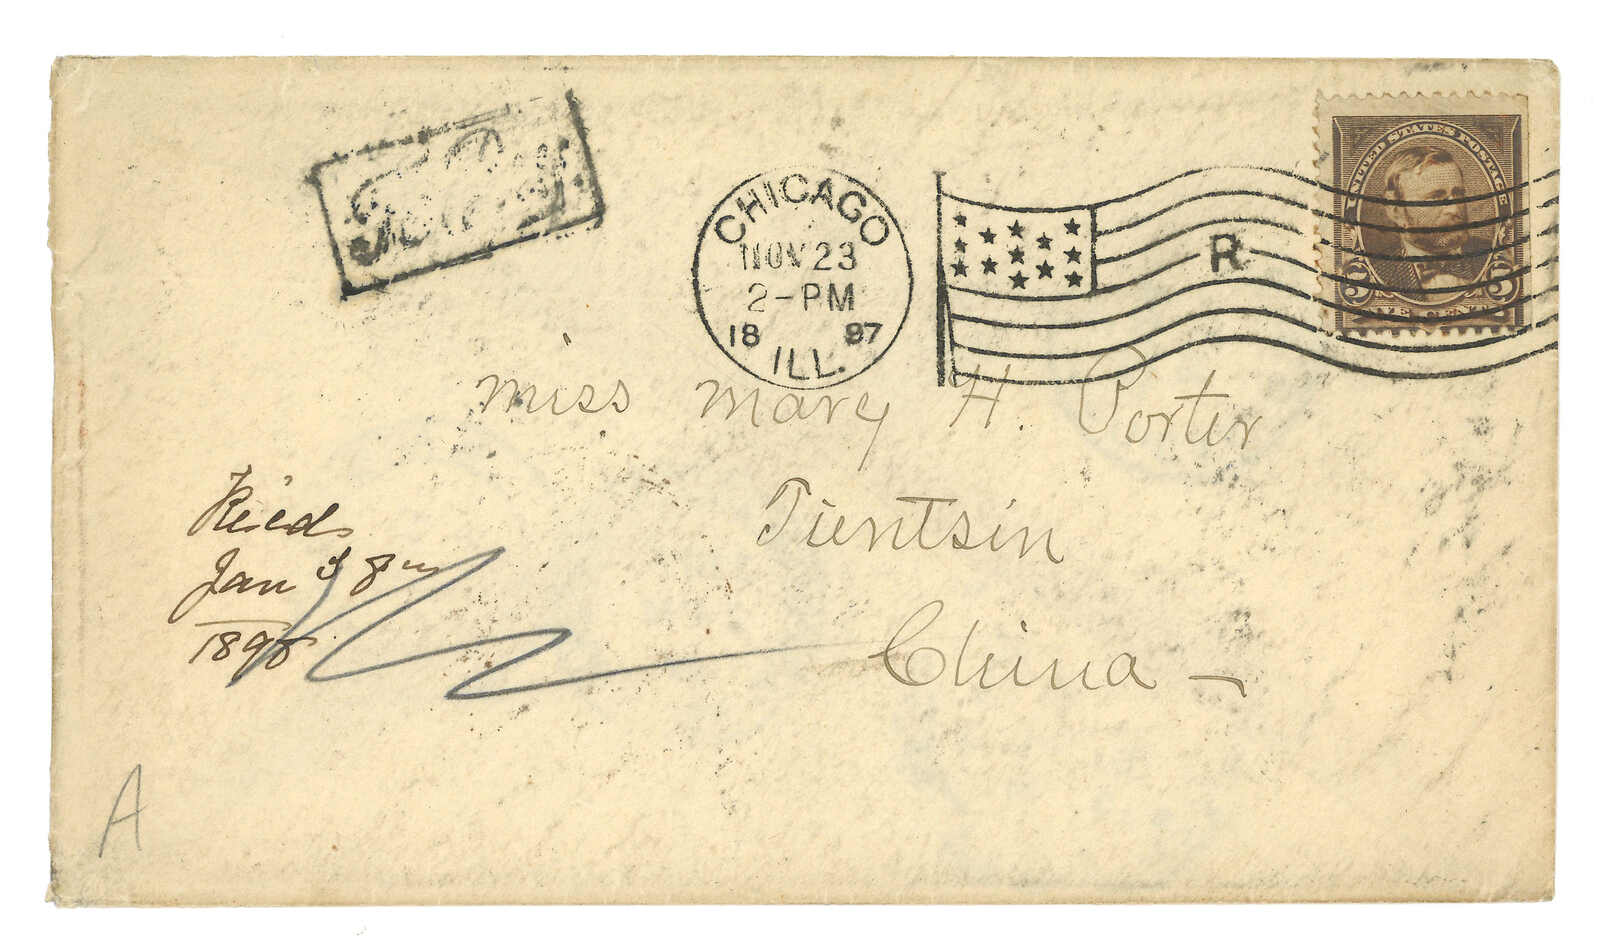 CHICAGO
NOV 23
2-PM
18 97
ILL.
R
UNITED STATES POSTAGE
5 5
FIVE CENTS
Miss Mary H. Porter
Tientsin
China -
Rec'd
Jan 3
1898
A